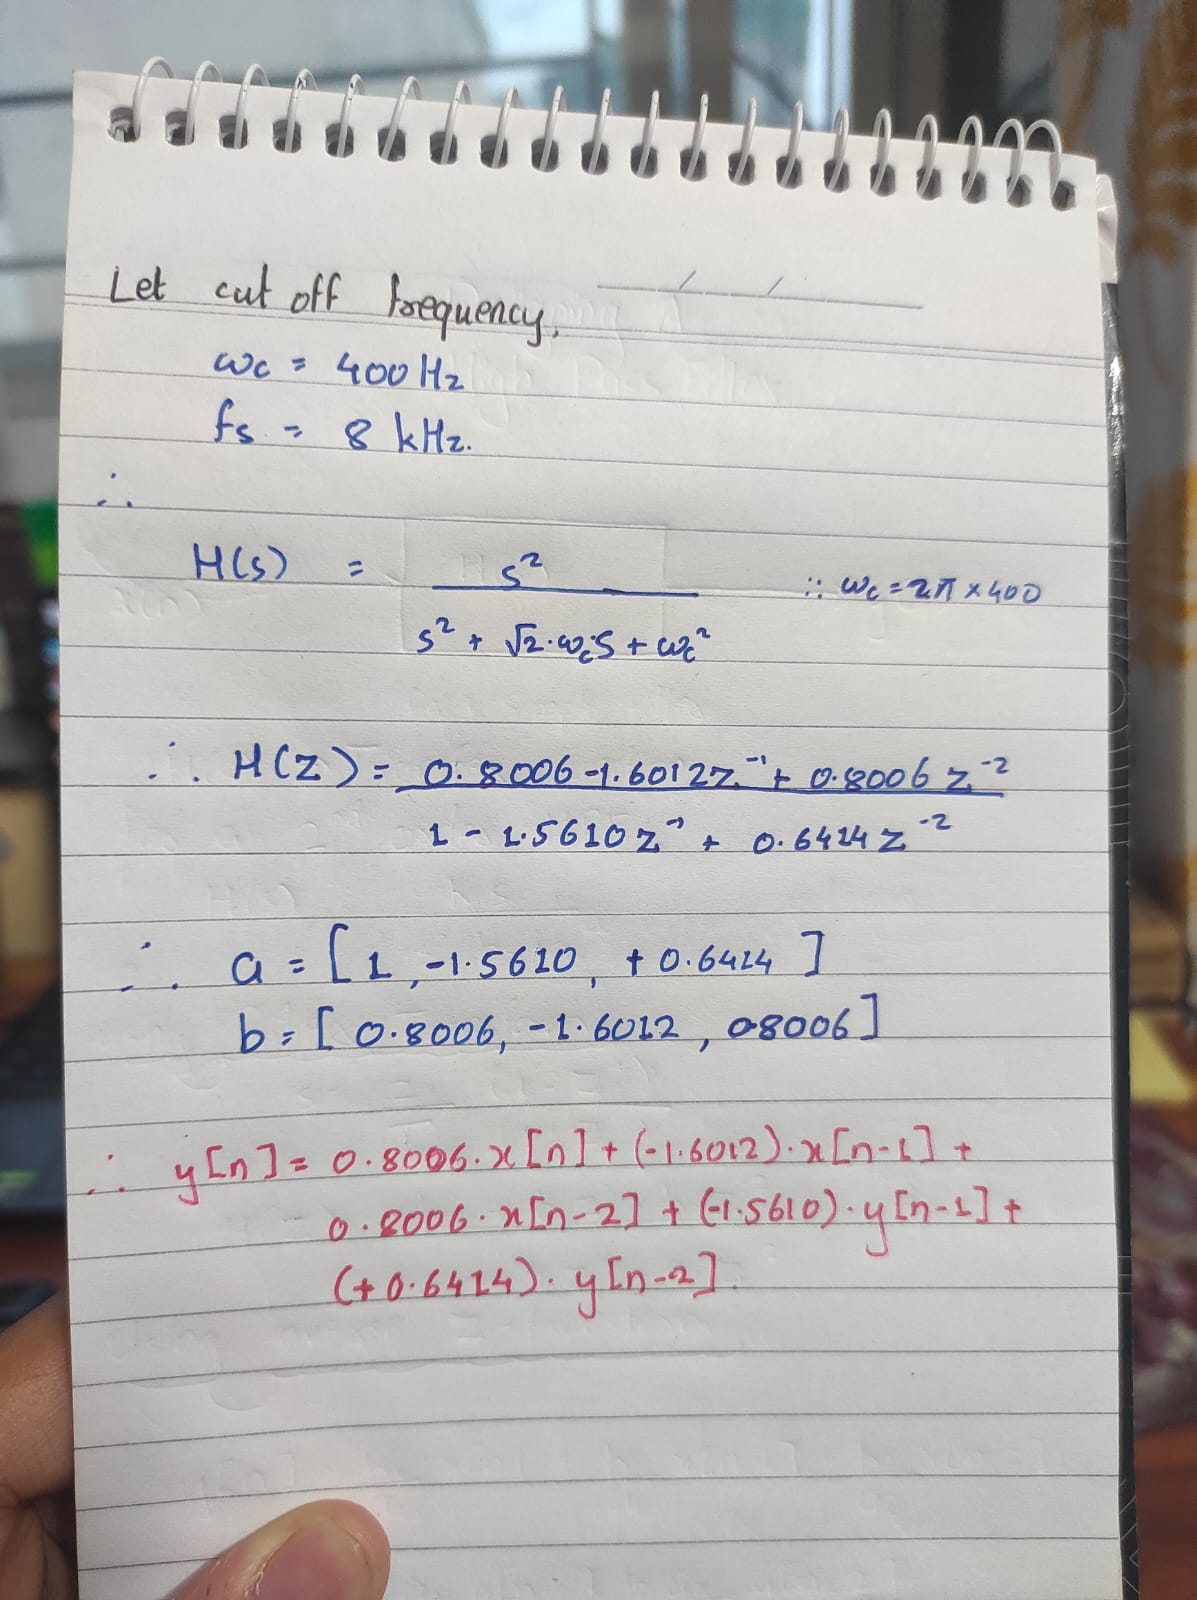 Let cut off frequency,
ωc = 400 Hz
fs = 8 kHz.
∴
H(s) = s² / s² + √2·ωcS + ωc² ∵ ωc = 2π × 400
∴ H(Z) = 0.8006 -1.6012z⁻¹ + 0.8006 z⁻² / 1 - 1.5610 z⁻¹ + 0.6414 z⁻²
∴ a = [1, -1.5610, +0.6414]
b = [0.8006, -1.6012, 0.8006]
∴ y[n] = 0.8006·x[n] + (-1.6012)·x[n-1] +
0.8006·x[n-2] + (-1.5610)·y[n-1] +
(+0.6414)·y[n-2].